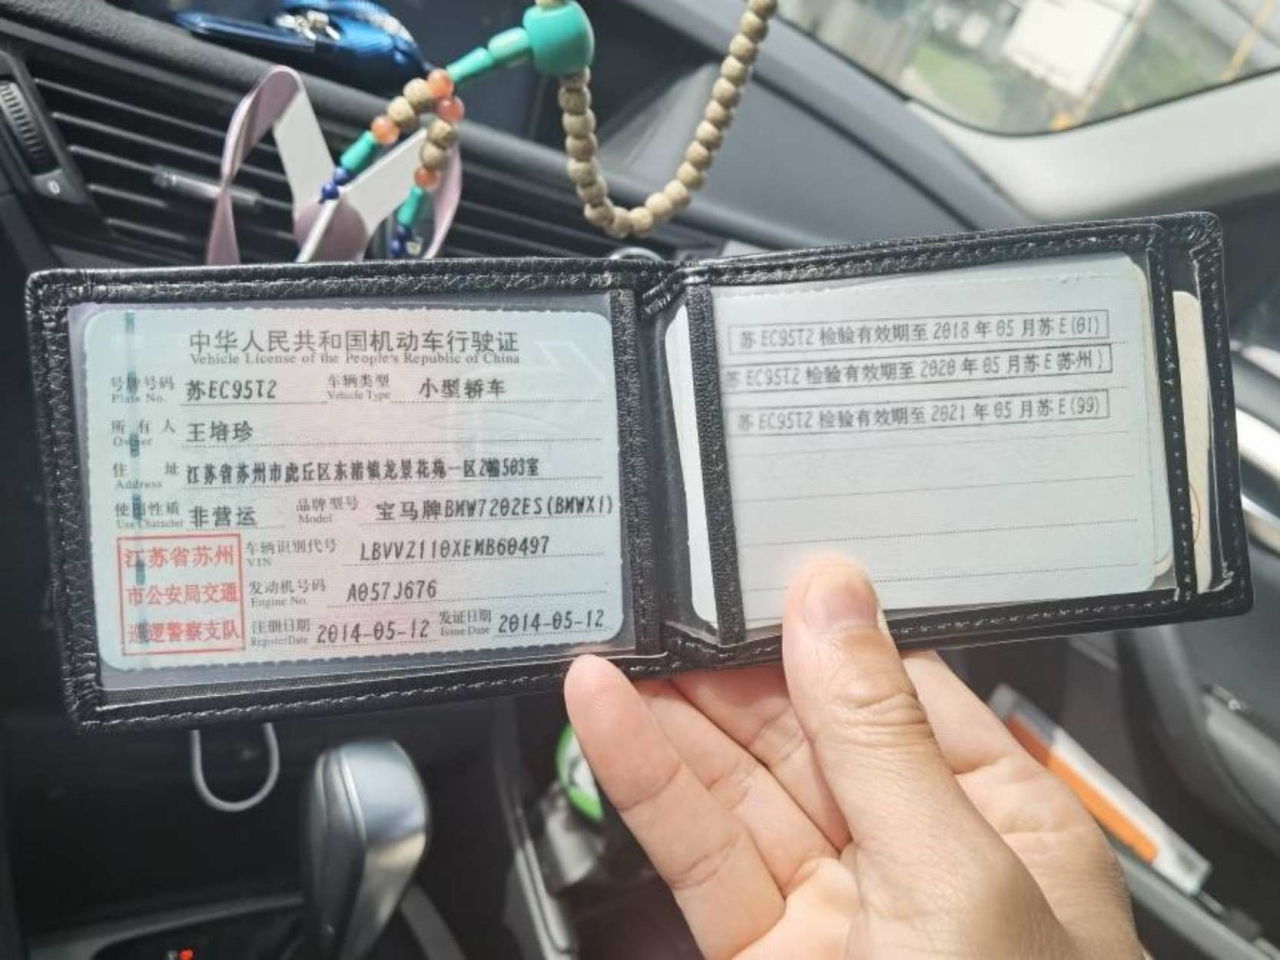 中华人民共和国机动车行驶证
Vehicle License of the People's Republic of China
号牌号码 苏EC95T2 车辆类型 小型轿车
Plate No. Vehicle Type
所有人 王培珍
Owner
住址 江苏省苏州市虎丘区东渚镇龙景花苑一区2幢503室
Address
使用性质 非营运 品牌型号 宝马牌BMW7202ES(BMWX1)
Use Character Model
江苏省苏州
市公安局交通
巡逻警察支队
车辆识别代号 LBVVZ110XEMB60497
VIN
发动机号码 A057J676
Engine No.
注册日期 2014-05-12 发证日期 2014-05-12
Register Date Issue Date
苏EC95T2 检验有效期至 2018 年 05 月苏 E(01)
苏 EC95T2 检验有效期至 2020 年 05 月苏 E(苏州)
苏 EC95T2 检验有效期至 2021 年 05 月苏 E(99)